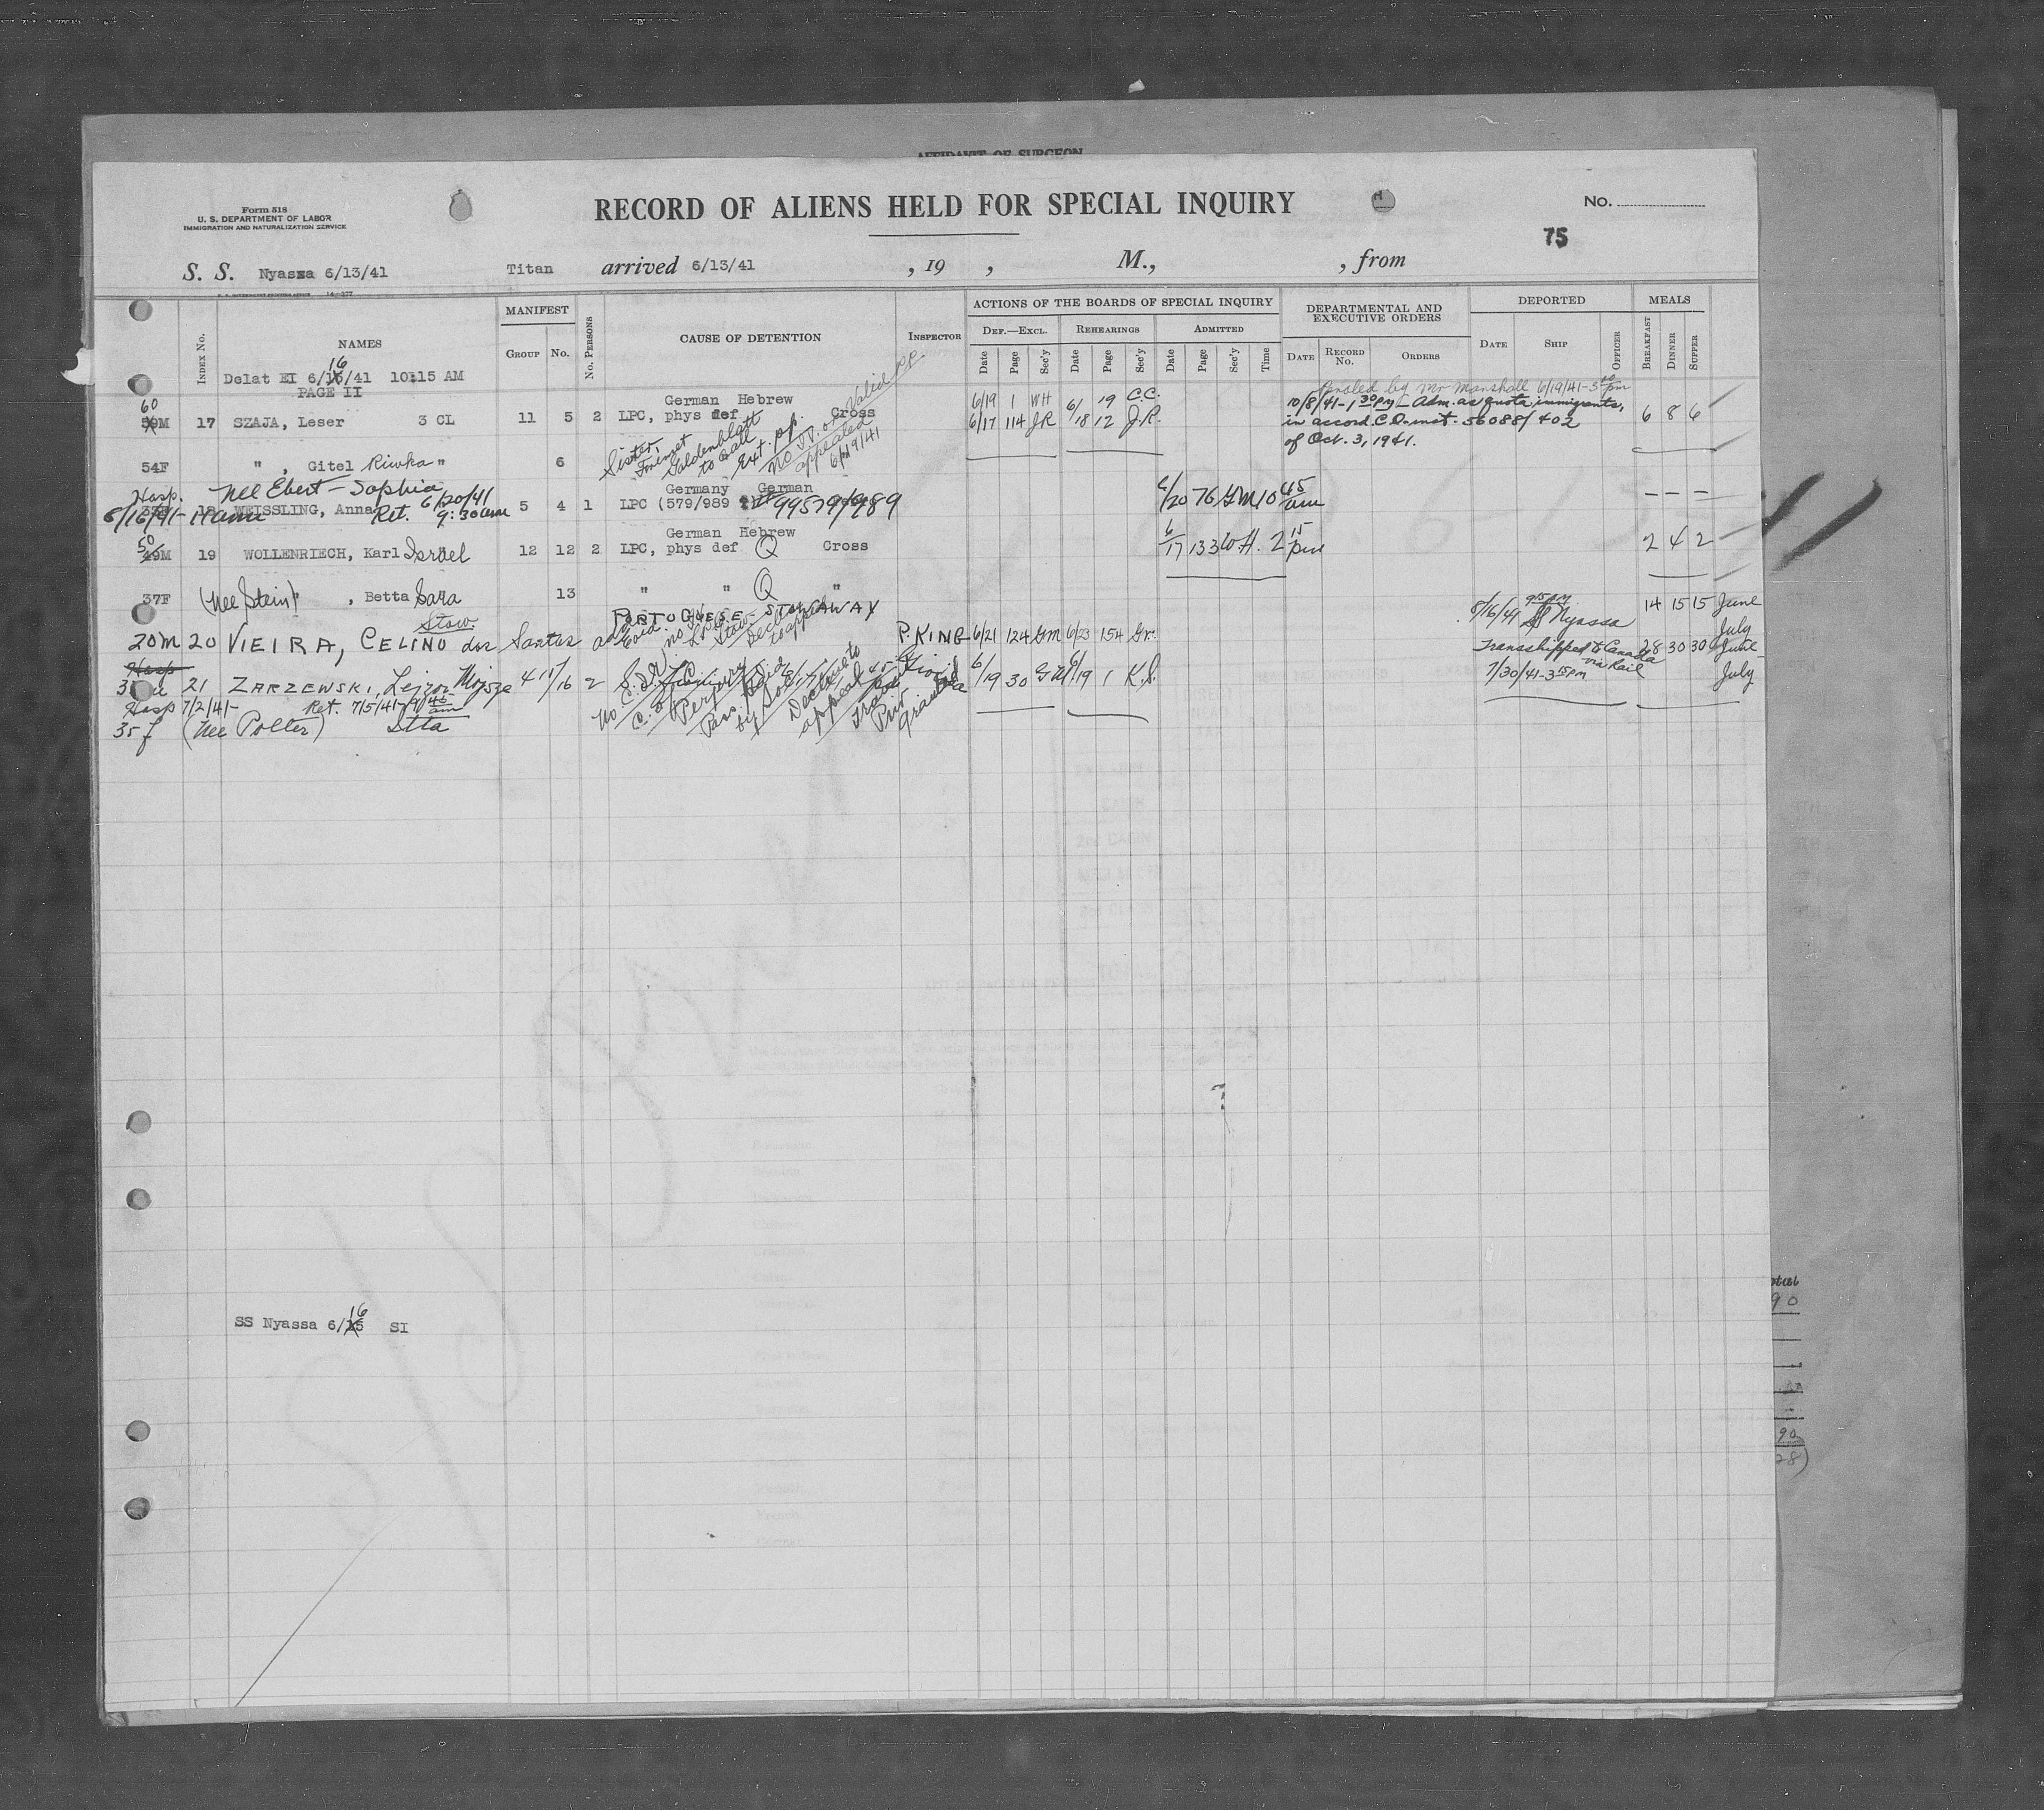 AFFIDAVIT OF SURGEON
Form 518
U. S. DEPARTMENT OF LABOR
IMMIGRATION AND NATURALIZATION SERVICE
RECORD OF ALIENS HELD FOR SPECIAL INQUIRY
No.
75
S. S. Nyassa 6/13/41 Titan arrived 6/13/41 , 19 , M., , from
MANIFEST
ACTIONS OF THE BOARDS OF SPECIAL INQUIRY
DEPARTMENTAL AND EXECUTIVE ORDERS
DEPORTED
MEALS
Index No. NAMES Group No. No. Persons CAUSE OF DETENTION Inspector
Def.—Excl. Rehearings Admitted
Date Page Sec'y Date Page Sec'y Date Page Sec'y Time Date Record No. Orders Date Ship Officer Breakfast Dinner Supper
16
Delat EI 6/15/41 10:15 AM
PAGE II
Valid pp.
Paroled by Mr Marshall 6/19/41-3 00 pm
German Hebrew
6/19 1 WH 6/ 19 C.C.
60
59M 17 SZAJA, Leser 3 CL 11 5 2 LPC, phys def Gross 6/17 114 JR 18 12 J.R. 6 8 6
10/8/41-1 30 pm - Adm. as quota immigrants,
in accord. C.O. inst. 56088/402
of Oct. 3, 1941.
54F " , Gitel Riwka " 6
Sister,
Goldenblatt
to call
Ext. pp.
appealed
6/19/41
Hosp. nee Ebert - Sophia
Germany German
6/16/41-11am WEISSLING, Anna Ret. 6/20/41 9:30am 5 4 1 LPC (579/989 99579/989 6/20 76 GM 10 45 am - - -
German Hebrew
50
49M 19 WOLLENRIECH, Karl Israel 12 12 2 LPC, phys def Q Gross 6/17 133 W.H. 2 15 pm 2 4 2
37F (nee Stein) " , Betta Sara 13 " " Q "
PORTUGUESE - STOWAWAY
Stow.
20M 20 VIEIRA, CELINO dos Santos P. KING 6/21 124 GM 6/23 154 Gr.
8/16/41 9 15 pm SS Nyassa 14 15 15 June
July
Hosp
21 ZARZEWSKI, Lejzor Mojsze 4 15/16 2 6/19 30 6/19 1 K.S.
Transshipped to Canada via Rail
7/30/41-3 15 pm
28 30 30 June
July
Hosp 7/2/41- Ret. 7/5/41-9 45 am
35 f (nee Polter) Itta
Perjury
Declined to
appeal
granted
SS Nyassa 6/15 16 SI
90
90
28)